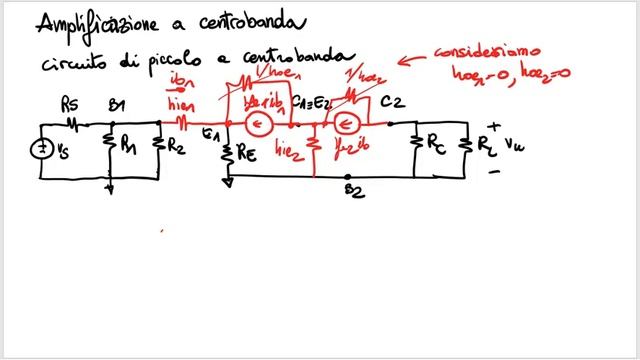 Amplificazione a centrobanda
circuito di piccolo e centrobanda
consideriamo
hoe1=0, hoe2=0
ib1
hie1
1/hoe1
hfe1ib1
1/hoe2
C1≡E2
C2
RS
B1
E1
vs
R1
R2
RE
hie2
RC
RL
vu
+
-
B2